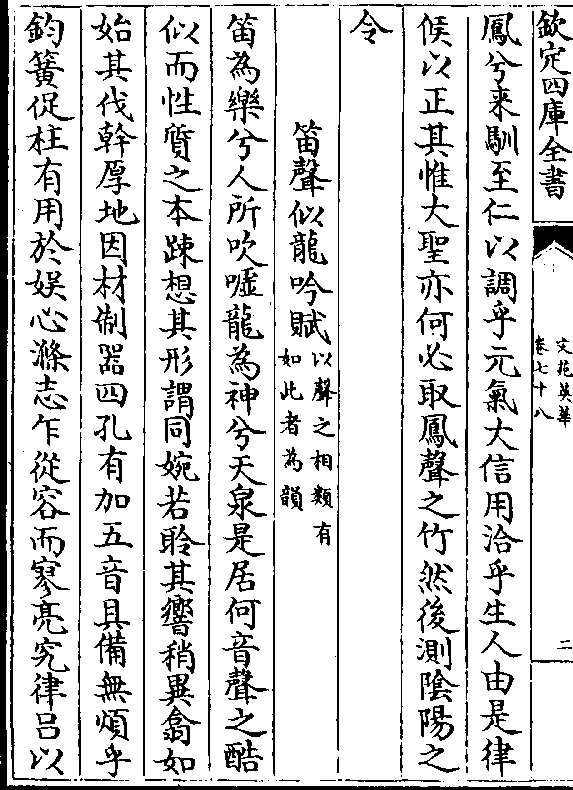 欽定四庫全書
文苑英華
卷七十八
二
鳳兮来馴至仁以調乎元氣大信用洽乎生人由是律
候以正其惟大聖亦何必取鳳聲之竹然後測陰陽之
令
笛聲似龍吟賦
以聲之相類有
如此者為韻
笛為樂兮人所吹嘘龍為神兮天泉是居何音聲之酷
似而性質之本踈想其形謂同婉若聆其響稍異翕如
始其伐幹厚地因材制器四孔有加五音具備無煩乎
鈞簧促柱有用於娱心滌志乍從容而寥亮究律吕以